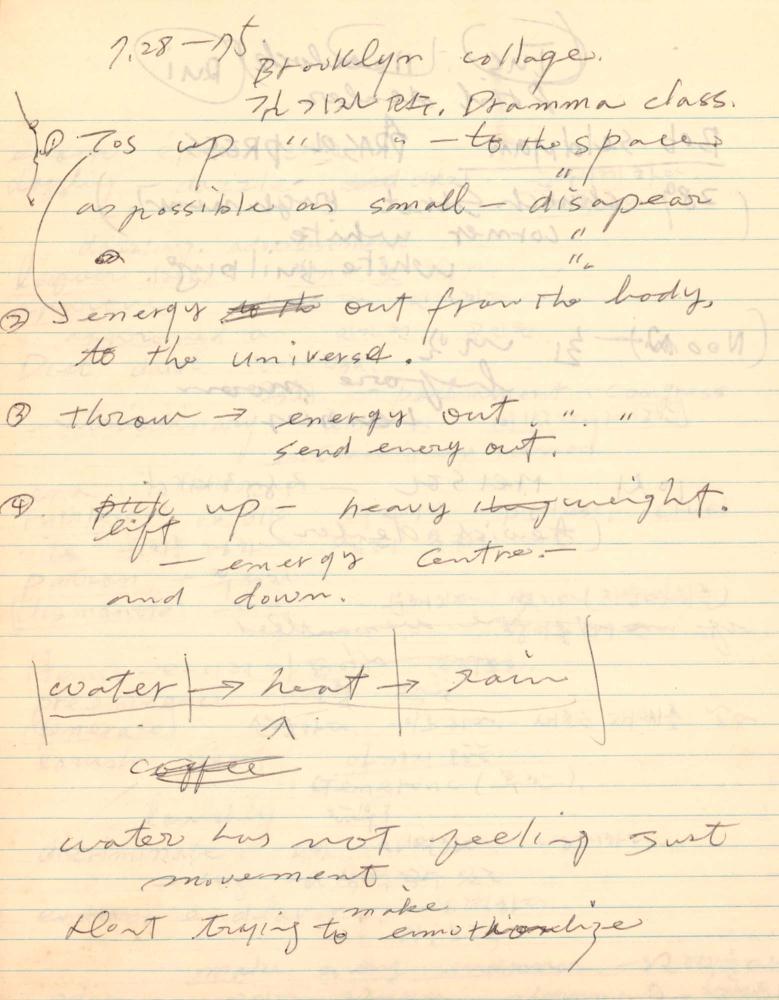 7.28-75
Brooklyn collage.
Dramma class.
① Tos up " " - to the space
"
as possible as small - disapear
"
".
② energy out from the body,
to the universe.
③ throw → energy out. ". "
send enery out.
④ lift up - heavy weight.
- energy centre. -
and down.
water → heat → rain
^
coffee
water has not feeling just
movement
dont trying to make emotionalize